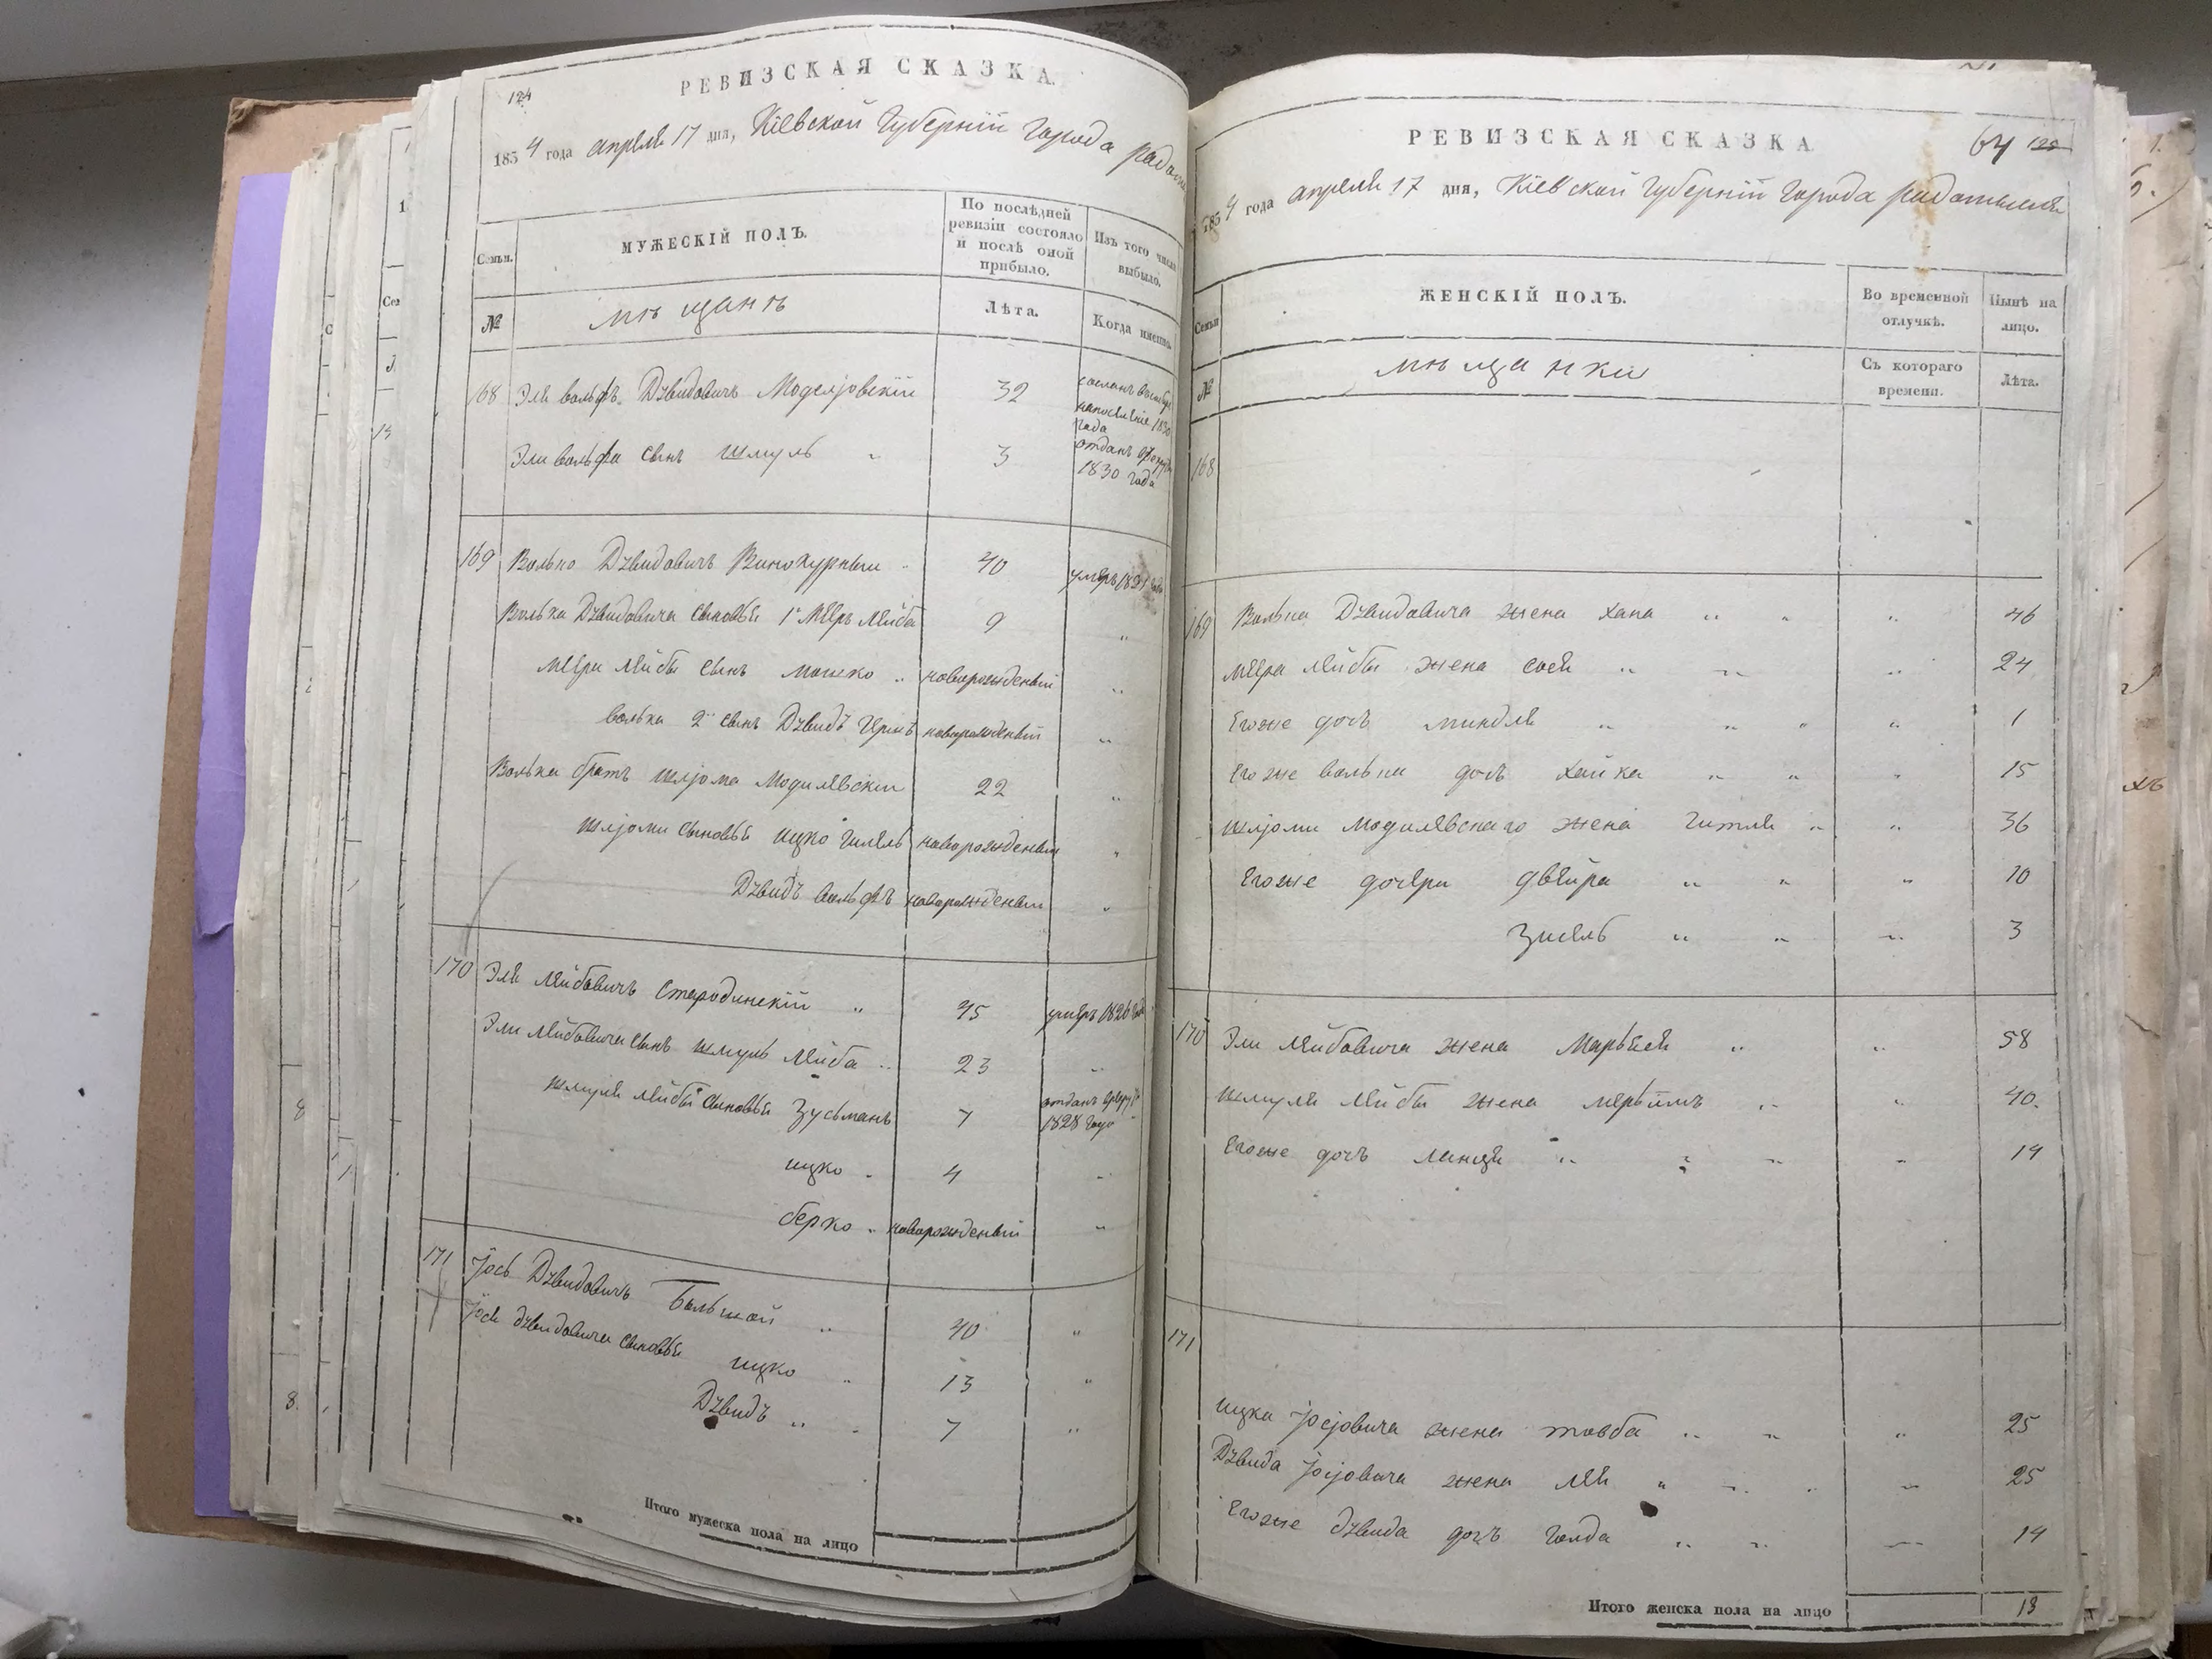 124
РЕВИЗСКАЯ СКАЗКА.
1854 года апреля 17 дня, Кіевской Губерніи Города
Семьи.
МУЖЕСКІЙ ПОЛЪ.
По послѣдней ревизіи состояло и послѣ оной прибыло.
Изъ того числа выбыло.
№
мѣщанъ
Лѣта.
Когда именно.
168 Эля вольфъ Дэвидовичъ 32
1830 года
Эли вольфа сынъ шмуль " 3 отданъ
1830 года
169 Волько Дэвидовичъ Винокурный 40 умеръ
Волька Дэвидовича сыновья 1й Меръ Лейба 9 "
Мера Лейбы сынъ мошко " новорожденый "
волька 2й сынъ Дэвидъ новорожденый "
Волька братъ шлјома 22 "
шлјоми сыновья ицко новорожденый "
Дэвидъ вольфъ новорожденый "
170 Эля Лейбовичъ " 45 умеръ 1826 года
Эли Лейбовича сынъ шмуль Лейба " 23 "
шмуля Лейбы сыновья Зусьманъ 7 отданъ
1828 году
ицко " 4 "
берко " новорожденый "
171 Јось Дэвидовичъ Большой " 40 "
Јося дэвидовича сыновья ицко " 13 "
Дэвидъ " " 7 "
Итого мужеска пола на лицо
РЕВИЗСКАЯ СКАЗКА
64 125
1854 года апреля 17 дня, Кіевской Губерніи Города радомысля
Семьи
ЖЕНСКІЙ ПОЛЪ.
Во временной отлучкѣ.
Нынѣ на лицо.
№
мѣщанки
Съ котораго времени.
Лѣта.
168
169 Волька Дэвидовича жена хана " " " 46
мера Лейбы жена сося " " " 24
Егоже дочь миндля " " " " 1
Егоже волька дочь хайка " " " 15
шлјоми жена Гитля " " 36
Егоже дочери двейра " " " 10
Зисель " " " 3
170 Эли Лейбовича жена Марьяся " " 58
шмуля Лейбы жена мерьямъ " " 40.
Егоже дочь " " " " 14
171
ицка Јосјовича жена товба " " " 25
Дэвида Јосјовича жена Лея " " " " 25
Егоже дэвида дочь Голда " " " 14
Итого женска пола на лицо 13